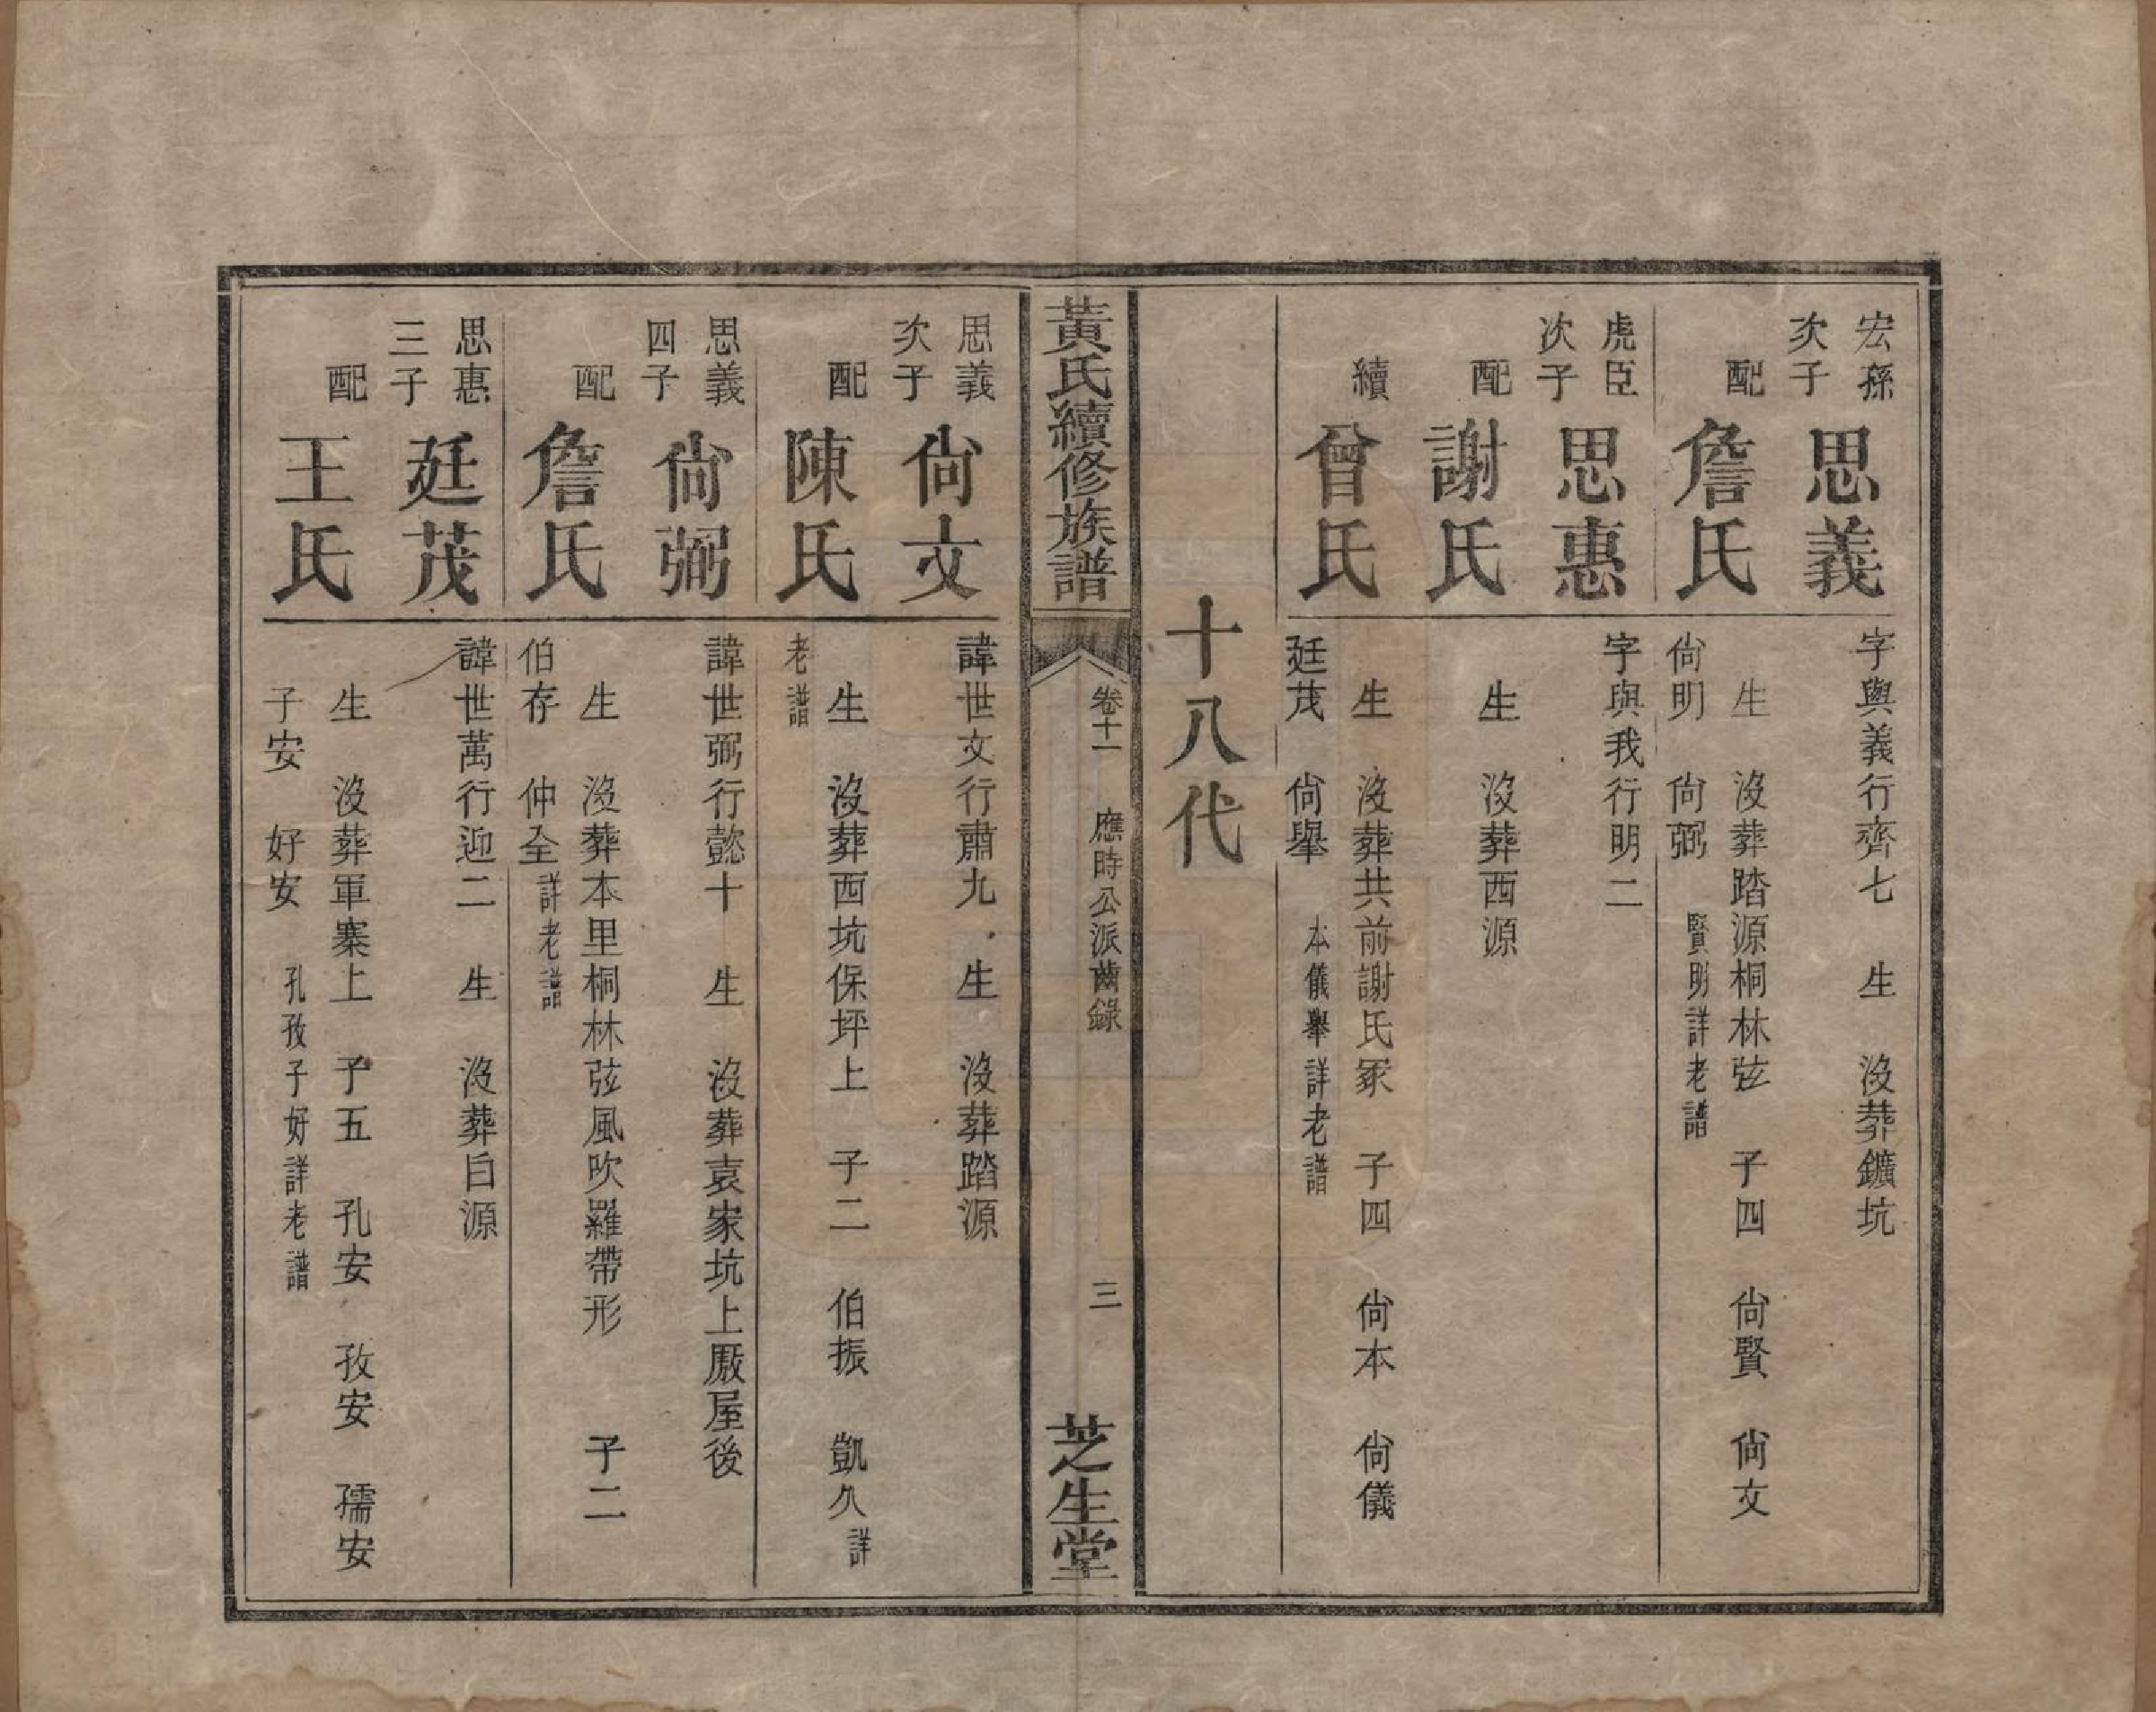 宏孫
次子
思義
字與義行齊七　生　沒葬鑛坑
配
詹氏
生　沒葬踏源桐林弦　子四　尙賢　尙文
尙明　尙弼　賢明詳老譜
虎臣
次子
思惠
字與我行明二
配
謝氏
生　沒葬西源
續
曾氏
生　沒葬共前謝氏冢　子四　尙本　尙儀
廷茂　尙舉　本儀舉詳老譜
十八代
黃氏續修族譜
卷十一　應時公派齒錄
三
芝生堂
思義
次子
尙文
諱世文行肅九　生　沒葬踏源
配
陳氏
生　沒葬西坑保坪上　子二　伯振　凱久詳
老譜
思義
四子
尙弼
諱世弼行懿十　生　沒葬袁家坑上厫屋後
配
詹氏
生　沒葬本里桐林弦風吹羅帶形　子二
伯存　仲全詳老譜
思惠
三子
廷茂
諱世萬行迎二　生　沒葬白源
配
王氏
生　沒葬軍寨上　子五　孔安　孜安　孺安
子安　好安　孔孜子好詳老譜